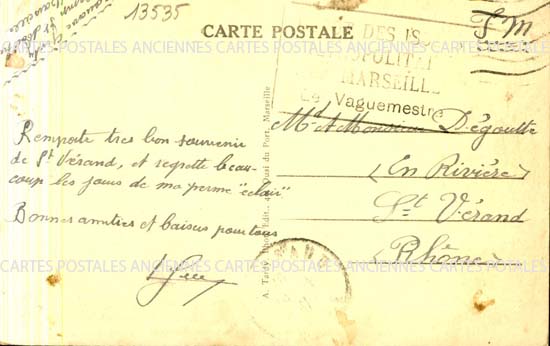 13535
CARTE POSTALE
F M
DES IS
MARSEILLE
Le Vaguemestre
Md et Monsieur Dégoutte
En Rivière
St Vérand
Rhône
Remporte tres bon souvenir
de St Vérand, et regrette beau-
coup les jours de ma perme "éclair"
Bonnes amitiés et baisers pour tous
Quai du Port, Marseille
CARTES POSTALES ANCIENNES CARTES POSTALES ANCIENNES CARTES POSTALES ANCIENNES
CARTES POSTALES ANCIENNES CARTES POSTALES ANCIENNES CARTES POSTALES ANCIENNES